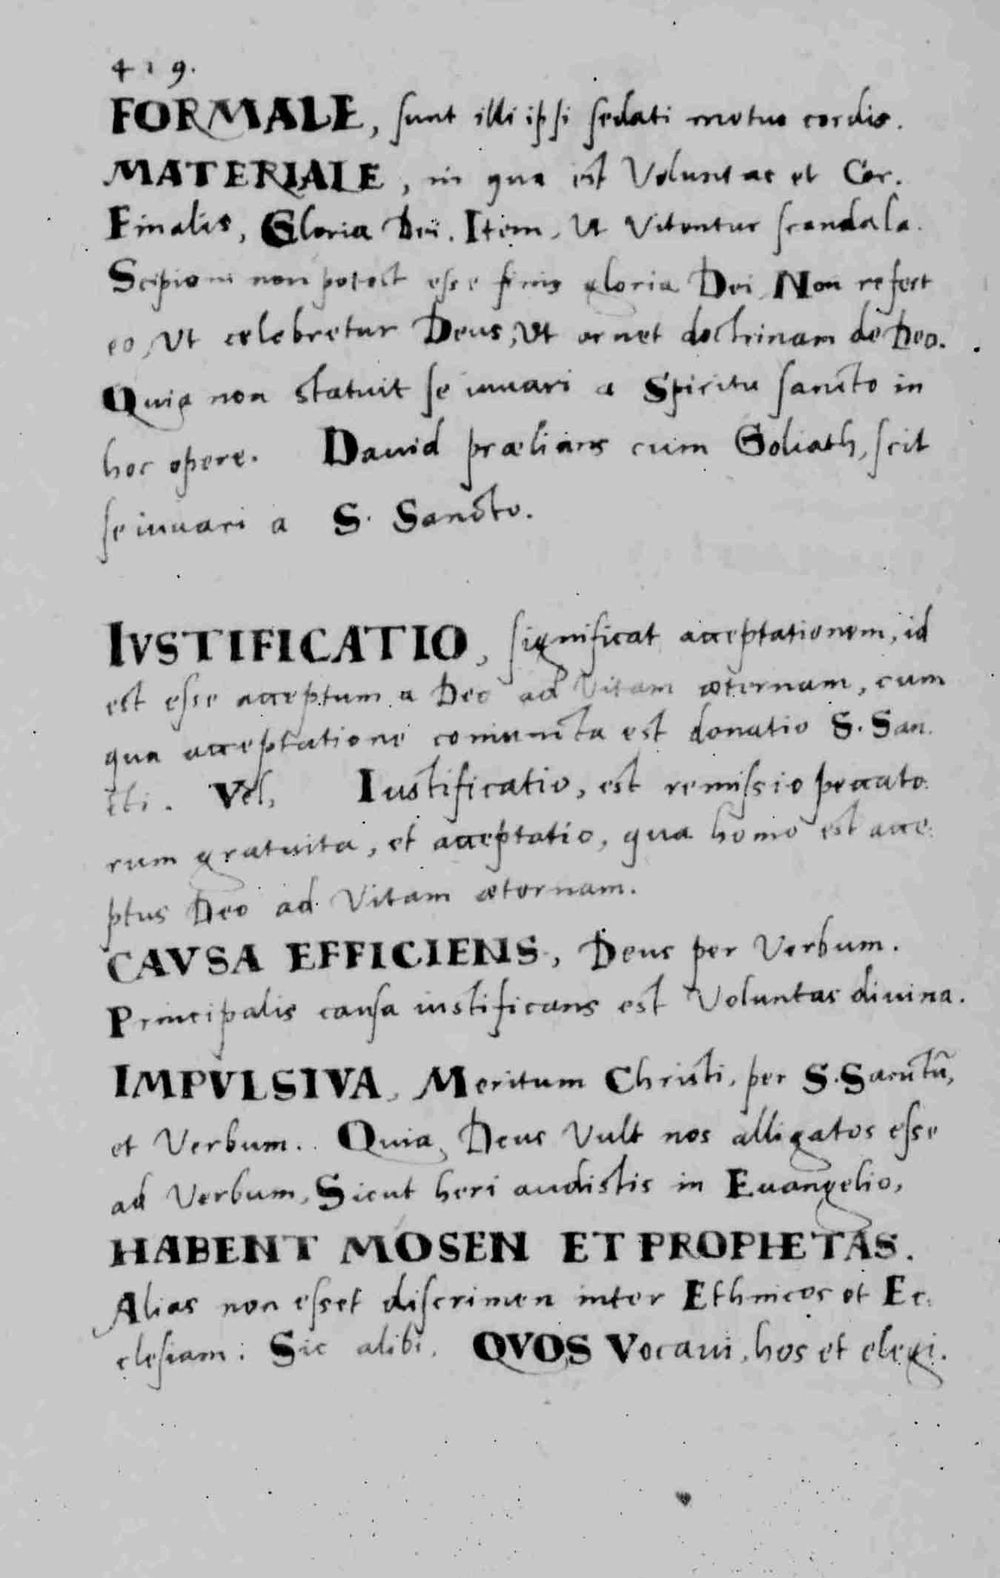 419.
FORMALE, sunt illi ipsi sedati motus cordis.
MATERIALE, in qua est Voluntas et Cor.
Finalis, Gloria Dei. Item, Ut Vitentur scandala.
Scipioni non potest esse finis gloria Dei. Non refert
eo, Ut celebretur Deus, Ut ornet doctrinam de Deo.
Quia non statuit se iuuari a Spiritu sancto in
hoc opere. Dauid prælians cum Goliath, scit
se iuuari a S. Sancto.
IVSTIFICATIO, significat acceptationem, id
est esse acceptum a Deo ad Vitam æternam, cum
qua acceptatione coniuncta est donatio S. San.
cti. Vel, Iustificatio, est remissio peccato.
rum gratuita, et acceptatio, qua homo est acce.
ptus Deo ad Vitam æternam.
CAVSA EFFICIENS, Deus per Verbum.
Principalis causa iustificans est Voluntas diuina.
IMPVLSIVA, Meritum Christi, per S. Sanctū,
et Verbum. Quia, Deus Vult nos alligatos esse
ad Verbum, Sicut heri audistis in Euangelio,
HABENT MOSEN ET PROPHETAS.
Alias non esset discrimen inter Ethnicos et Ec.
clesiam. Sic alibi. QVOS Vocaui, hos et elegi.